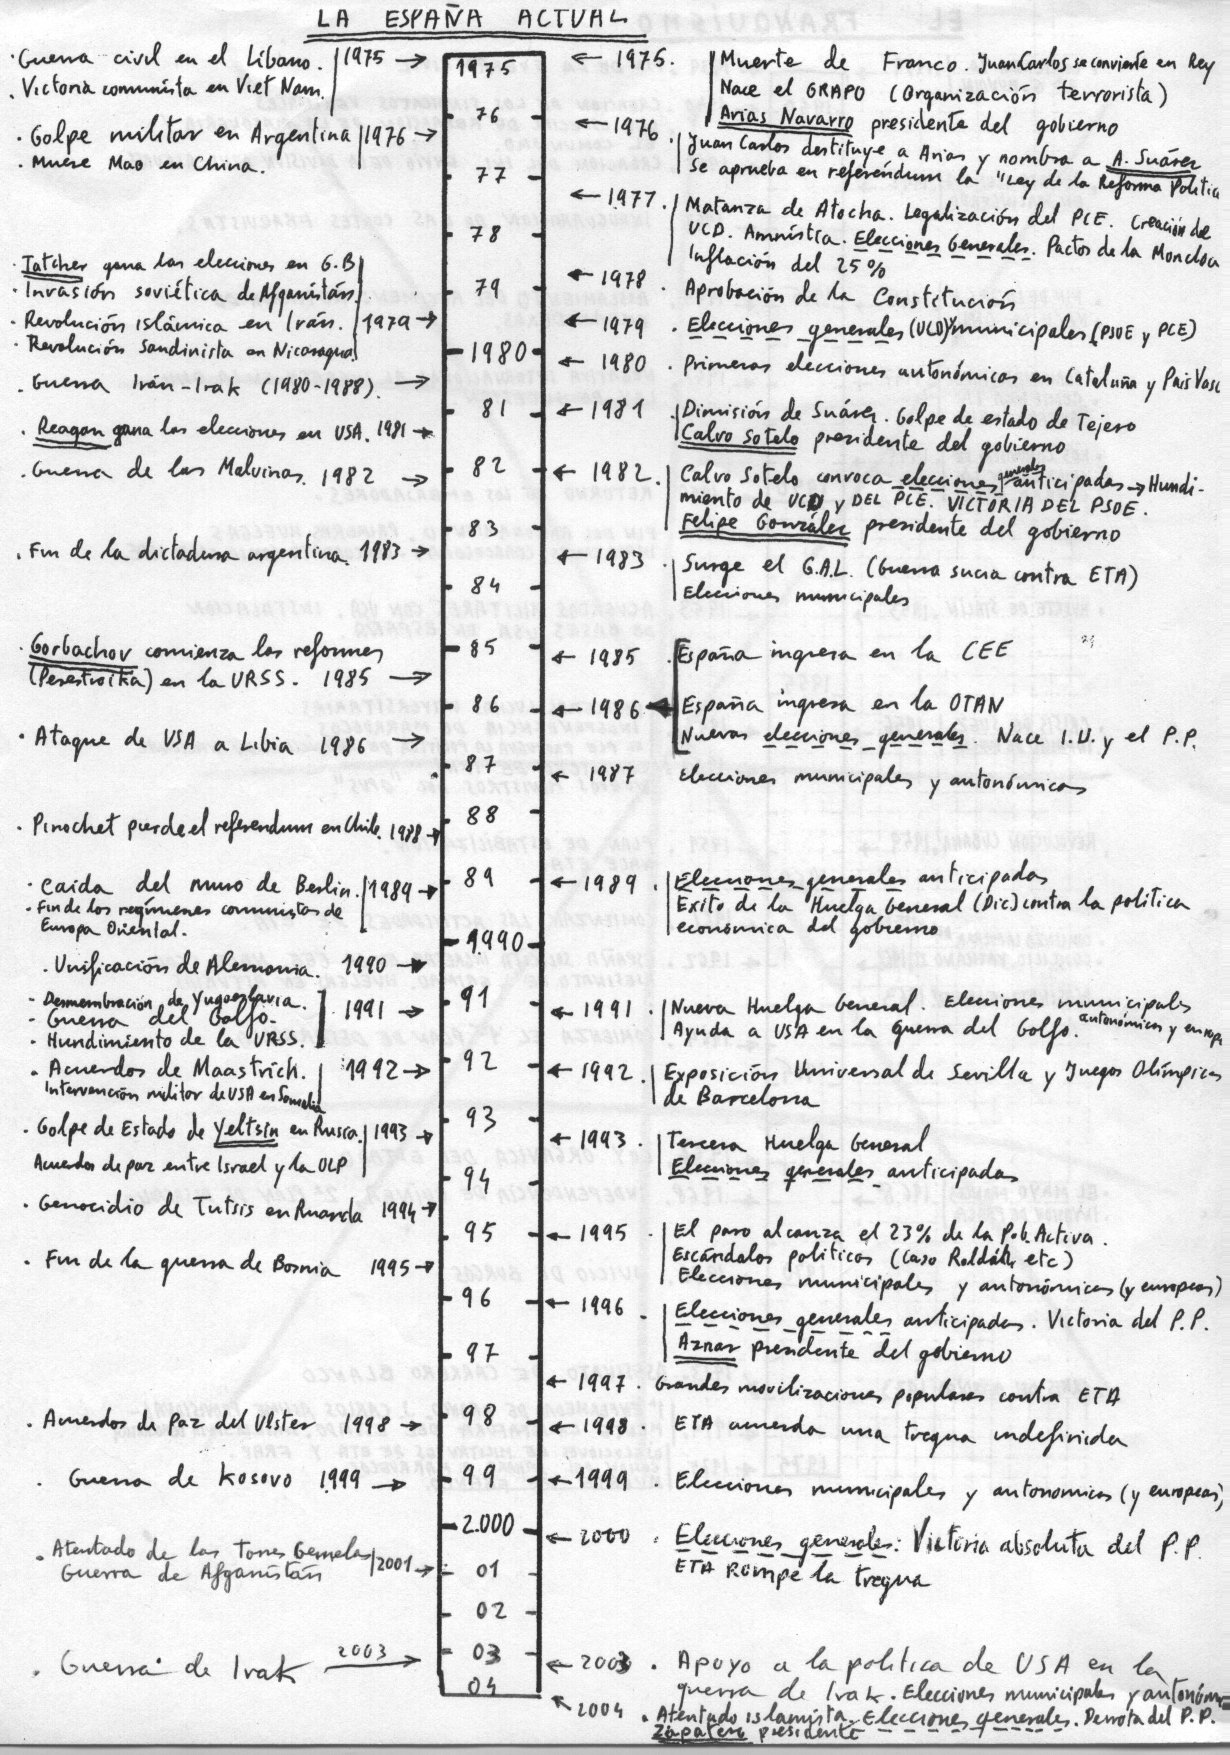 LA ESPAÑA ACTUAL
· Guerra civil en el Líbano.
. Victoria comunista en Viet Nam.
1975 →
· Golpe militar en Argentina
· Muere Mao en China.
1976 →
· Tatcher gana las elecciones en G.B
· Invasión soviética de Afganistán.
· Revolución islámica en Irán.
· Revolución Sandinista en Nicaragua
1979 →
. Guerra Irán-Irak (1980-1988). →
. Reagan gana las elecciones en USA. 1981 →
. Guerra de las Malvinas. 1982 →
. Fin de la dictadura argentina. 1983 →
. Gorbachov comienza las reformas
(Perestroika) en la URSS. 1985 →
· Ataque de USA a Libia 1986 →
. Pinochet pierde el referendum en Chile. 1988 →
· Caida del muro de Berlín.
· Fin de los regímenes comunistas de
Europa Oriental.
1989 →
. Unificación de Alemania. 1990 →
- Desmembración de Yugoeslavia.
- Guerra del Golfo.
- Hundimiento de la URSS.
1991 →
. Acuerdos de Maastrich.
Intervención militar de USA en Somalia
1992 →
. Golpe de Estado de Yeltsin en Rusia.
Acuerdos de paz entre Israel y la OLP
1993 →
· Genocidio de Tutsis en Ruanda 1994 →
. Fin de la guerra de Bosnia 1995 →
. Acuerdos de Paz del Ulster 1998 →
. Guerra de Kosovo 1999 →
. Atentado de las Torres Gemelas
Guerra de Afganistán
2001 →
. Guerra de Irak 2003 →
1975
76
77
78
79
1980
81
82
83
84
85
86
87
88
89
1.990
91
92
93
94
95
96
97
98
99
2.000
01
02
03
04
← 1975.
Muerte de Franco. Juan Carlos se convierte en Rey
Nace el GRAPO (Organización terrorista)
Arias Navarro presidente del gobierno
← 1976
Juan Carlos destituye a Arias y nombra a A. Suárez
Se aprueba en referéndum la "Ley de la Reforma Politica
← 1977.
Matanza de Atocha. Legalización del PCE. Creación de
UCD. Amnistía. Elecciones Generales. Pactos de la Moncloa
Inflación del 25%
← 1978 . Aprobación de la Constitución
← 1979 . Elecciones generales (UCD) y municipales (PSOE y PCE)
← 1980 . Primeras elecciones autonómicas en Cataluña y Pais Vasc
← 1981
Dimisión de Suárez. Golpe de estado de Tejero
Calvo Sotelo presidente del gobierno
← 1982.
Calvo Sotelo convoca elecciones generales anticipadas → Hundi-
miento de UCD y DEL PCE. VICTORIA DEL PSOE.
Felipe González presidente del gobierno
← 1983
Surge el G.A.L. (Guerra sucia contra ETA)
Elecciones municipales
← 1985 . España ingresa en la CEE
← 1986
España ingresa en la OTAN
Nuevas elecciones generales. Nace I.U. y el P.P.
← 1987 Elecciones municipales y autonómicas
← 1989 .
Elecciones generales anticipadas
Exito de la Huelga General (Dic) contra la política
económica del gobierno
← 1991 .
Nueva Huelga General. Elecciones municipales
autonómicas y europ
Ayuda a USA en la guerra del Golfo.
← 1992.
Exposición Universal de Sevilla y Juegos Olímpicos
de Barcelona
← 1993 .
Tercera Huelga General
Elecciones generales anticipadas
← 1995 .
El paro alcanza el 23% de la Pob. Activa.
Escándalos políticos (Caso Roldán, etc)
Elecciones municipales y autonómicas (y europeas)
← 1996 .
Elecciones generales anticipadas. Victoria del P.P.
Aznar presidente del gobierno
← 1997 . Grandes movilizaciones populares contra ETA
← 1998 . ETA acuerda una tregua indefinida
← 1999 . Elecciones municipales y autonomicas (y europeas)
← 2000 . Elecciones generales: Victoria absoluta del P.P.
ETA Rompe la tregua
← 2003 . Apoyo a la política de USA en la
guerra de Irak. Elecciones municipales y autonóm
2004 . Atentado islamista. Elecciones generales. Derrota del P.P.
Zapatero presidente